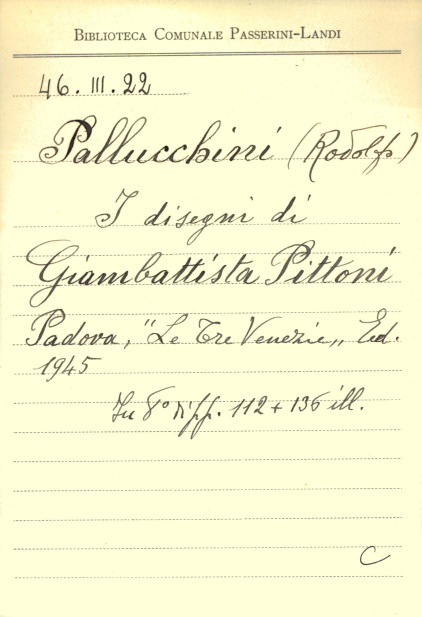 Biblioteca Comunale Passerini-Landi
46. III. 22
Pallucchini (Rodolfo)
I disegni di
Giambattista Pittoni
Padova, "Le Tre Venezie„ Ed.
1945
In 8° di pp. 112 + 136 ill.
C